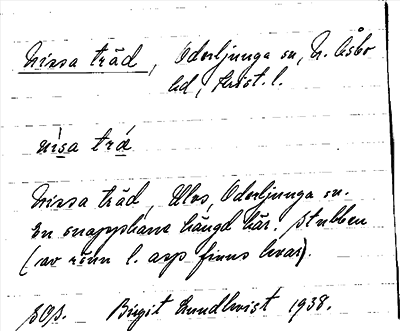 Nissa träd, Oderljunga sn, N. Åsbo
hd, Krist. l.
nìsa trä́
Nissa träd, Ulvs, Oderljunga sn.
En snapphane hängd här. Stubben
(av rönn l. asp finns kvar).
Birgit Lundkvist 1938.